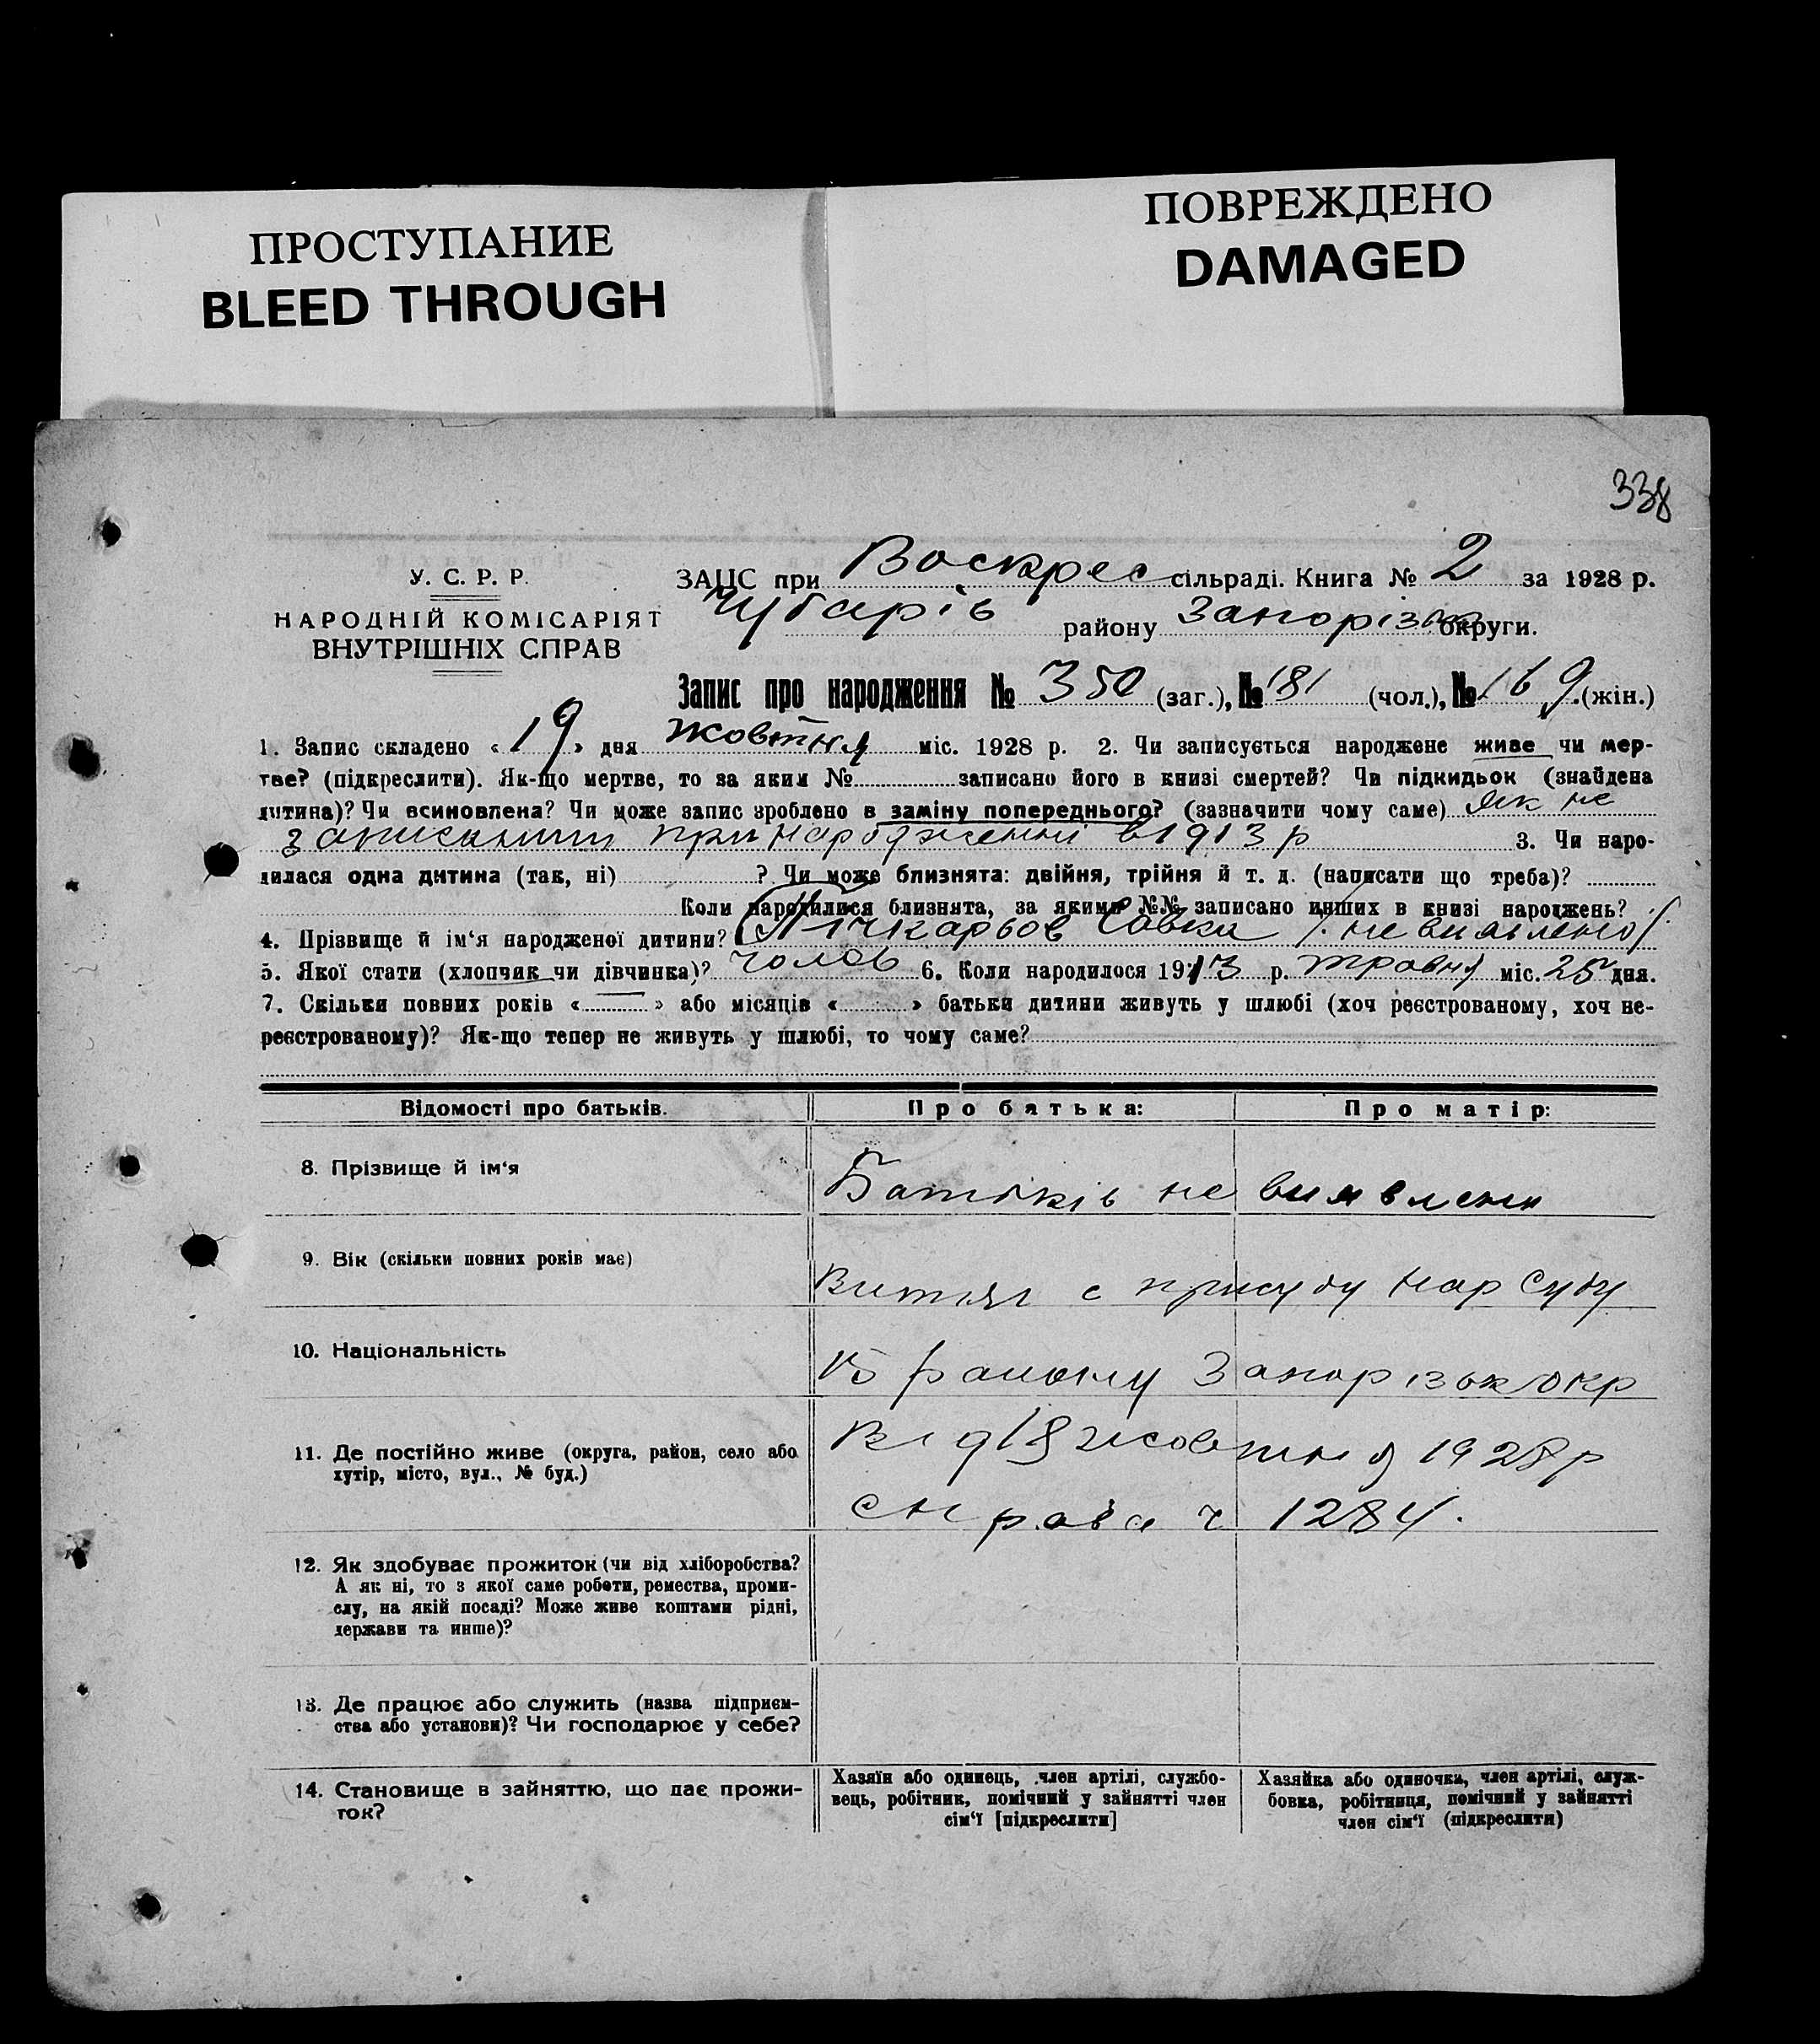 ПРОСТУПАНИЕ
BLEED THROUGH
ПОВРЕЖДЕНО
DAMAGED
338
У. С. Р. Р.
НАРОДНІЙ КОМІСАРІЯТ
ВНУТРІШНІХ СПРАВ
ЗАЦС при Воскрес сільраді. Книга № 2 за 1928 р.
Чубарів району Запорізьк округи.
Запис про народження № 350 (заг.), № 181 (чол.), № 169 (жін.)
1. Запис складено « 19 » дня жовтня міс. 1928 р. 2. Чи записується народжене живе чи мер-
тве? (підкреслити). Як-що мертве, то за яким № записано його в книзі смертей? Чи підкидьок (знайдена
дитина)? Чи всиновлена? Чи може запис зроблено в заміну попереднього? (зазначити чому саме) Як не
записаний при народженні в 1913 р 3. Чи наро-
дилася одна дитина (так, ні) ? Чи може близнята: двійня, трійня й т. д. (написати що треба)?
Коли народилися близнята, за якими №№ записано инших в книзі народжень?
4. Прізвище й ім'я народженої дитини? Савка /не виявлено/
5. Якої стати (хлопчик чи дівчинка)? чолов 6. Коли народилося 1913 р. травня міс. 25 дня.
7. Скільки повних років « — » або місяців « » батьки дитини живуть у шлюбі (хоч реєстрованому, хоч не-
реєстрованому)? Як-що тепер не живуть у шлюбі, то чому саме?
Відомості про батьків. Про батька: Про матір:
8. Прізвище й ім'я Батьків не виявлени
9. Вік (скільки повних років має) Витяг с присуду Нар Суду
10. Національність 15 району Запорізьк Окр
11. Де постійно живе (округа, район, село або
хутір, місто, вул., № буд.)
Від 18 жовтня 1928 р
Справа ч 1284.
12. Як здобуває прожиток (чи від хліборобства?
А як ні, то з якої саме роботи, ремества, проми-
слу, на якій посаді? Може живе коштами рідні,
держави та инше)?
13. Де працює або служить (назва підприєм-
ства або установи)? Чи господарює у себе?
14. Становище в зайняттю, що дає прожи-
ток?
Хазяїн або одинець, член артілі, службо-
вець, робітник, помічний у зайнятті член
сім'ї [підкреслити]
Хазяйка або одиночка, член артілі, служ-
бовка, робітниця, помічний у зайнятті
член сім'ї (підкреслити)